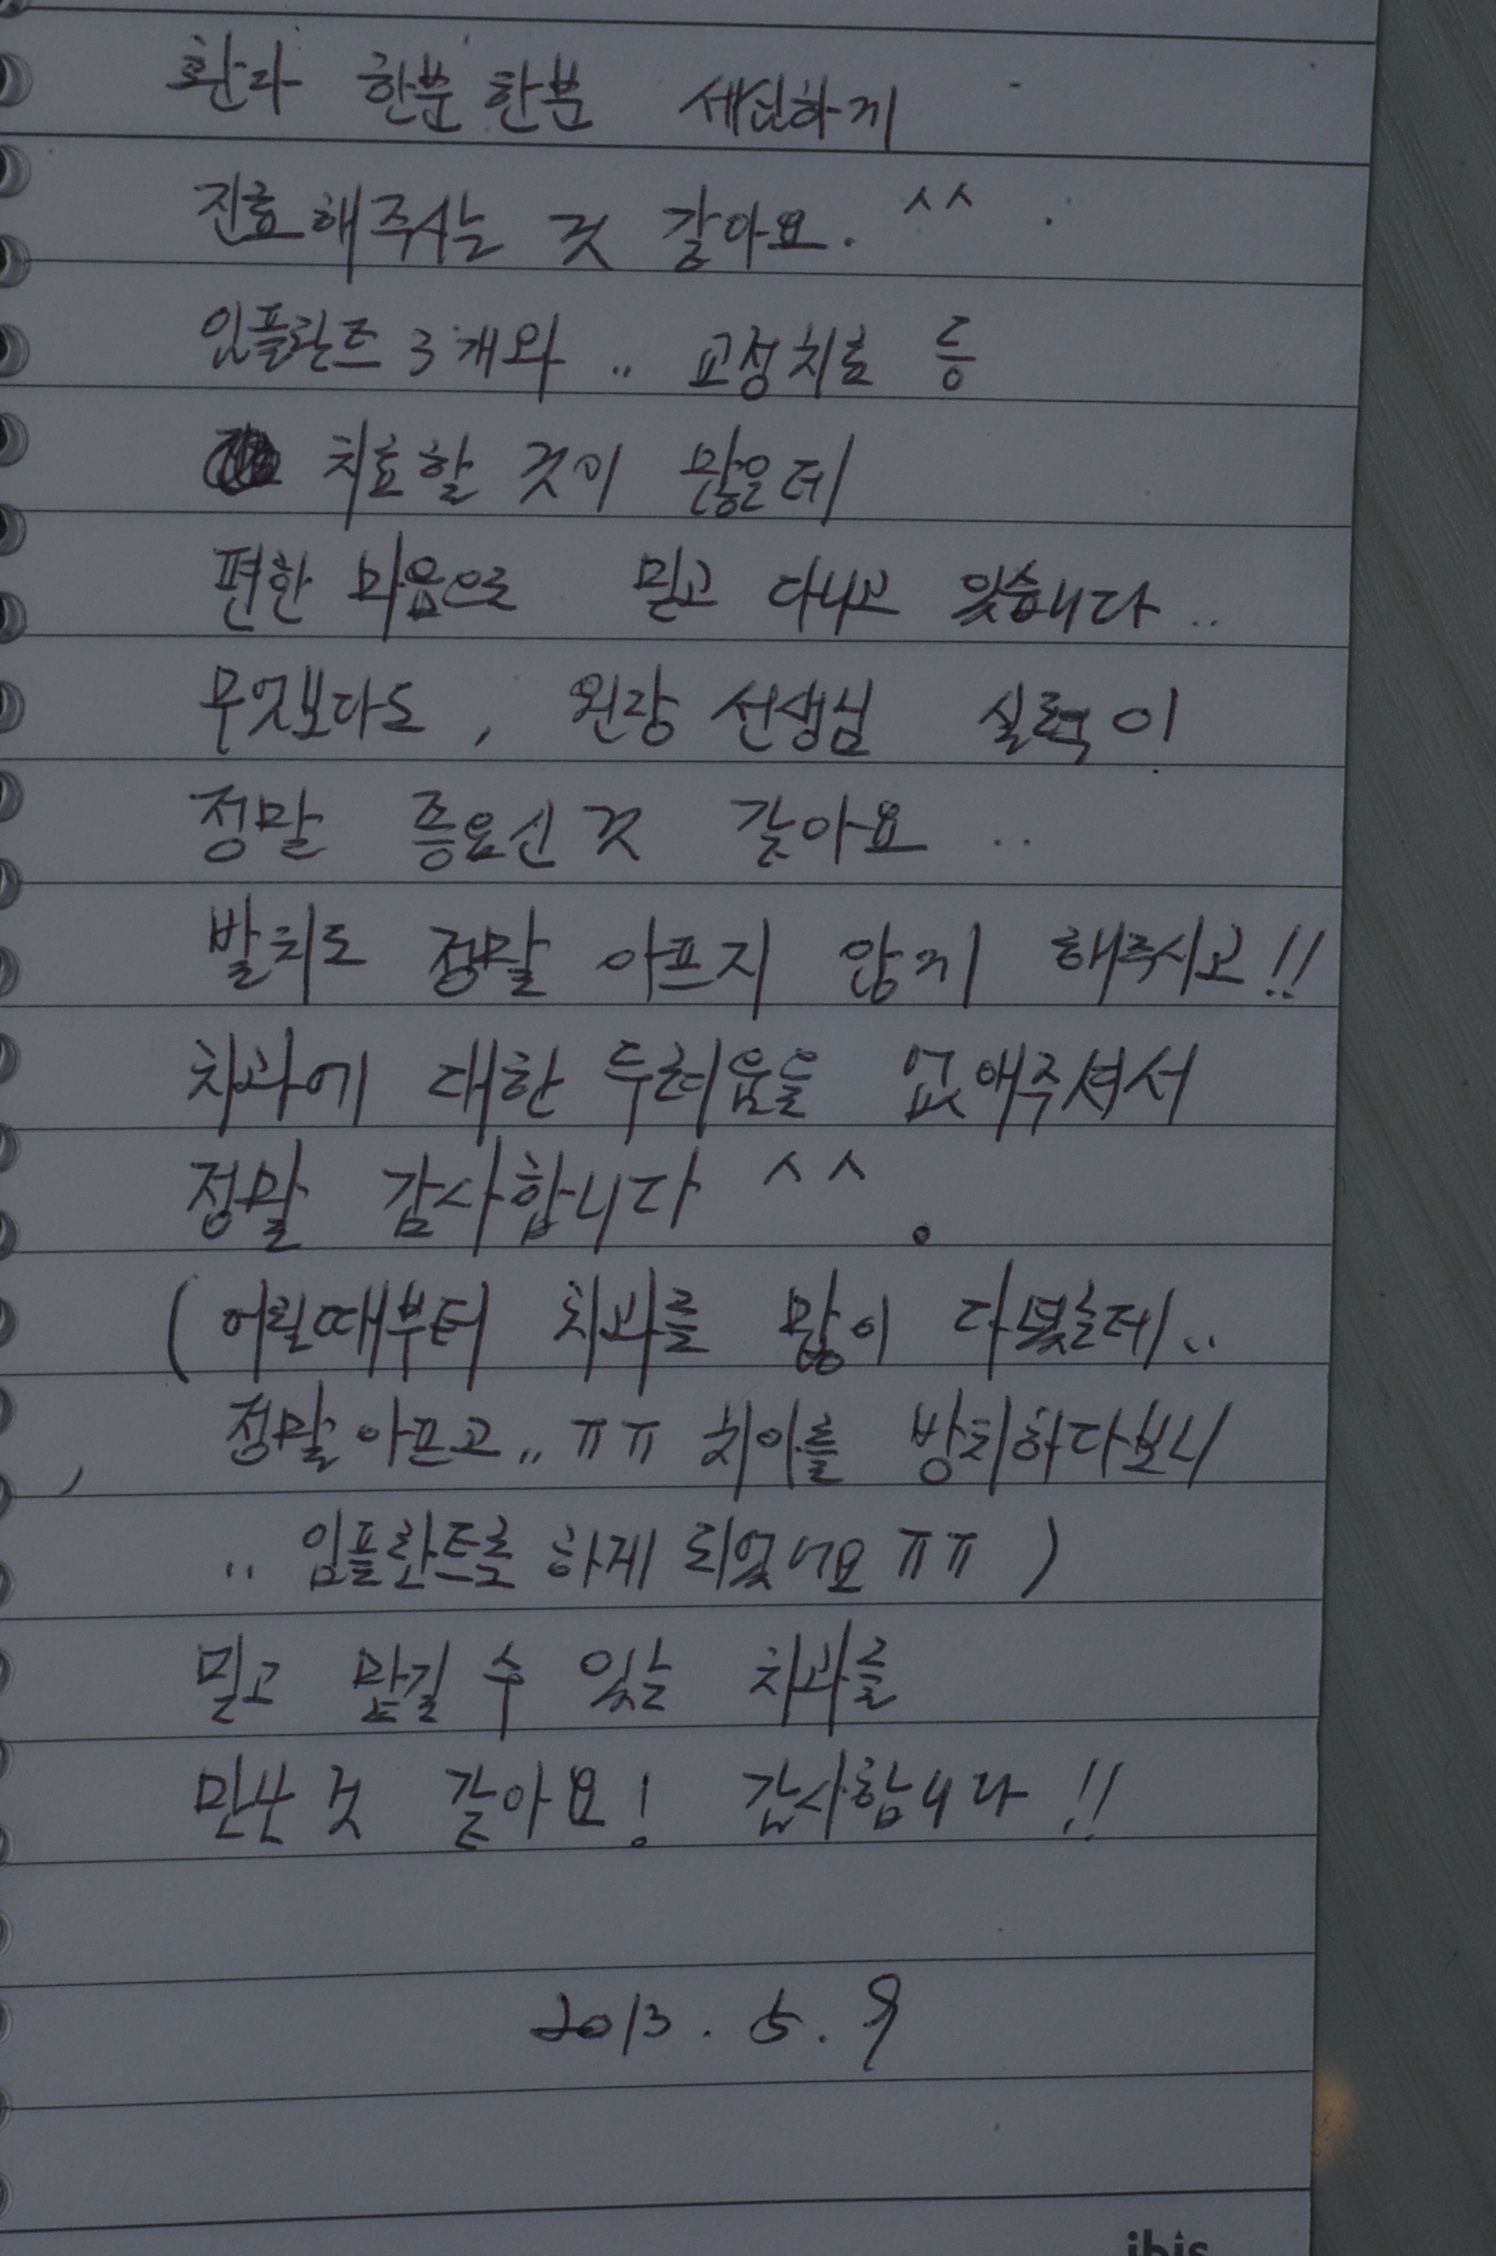 환자 한분한분 세심하게
진료해주시는 것 같아요. ^^
임플란트 3개와 .. 교정치료 등
치료할 것이 많은데
편한 마음으로 믿고 다니고 있습니다 ..
무엇보다도, 원장 선생님 실력이
정말 좋으신것 같아요 ..
발치도 정말 아프지 않게 해주시고!!
치과에 대한 두려움을 없애주셔서
정말 감사합니다 ^^.
(어릴때부터 치과를 많이 다녔는데..
정말 아프고.. ㅠㅠ 치아를 방치하다보니
.. 임플란트를 하게 되었네요 ㅠㅠ)
믿고 맡길 수 있는 치과를
만난 것 같아요! 감사합니다!!
2013. 5. 9
ibis